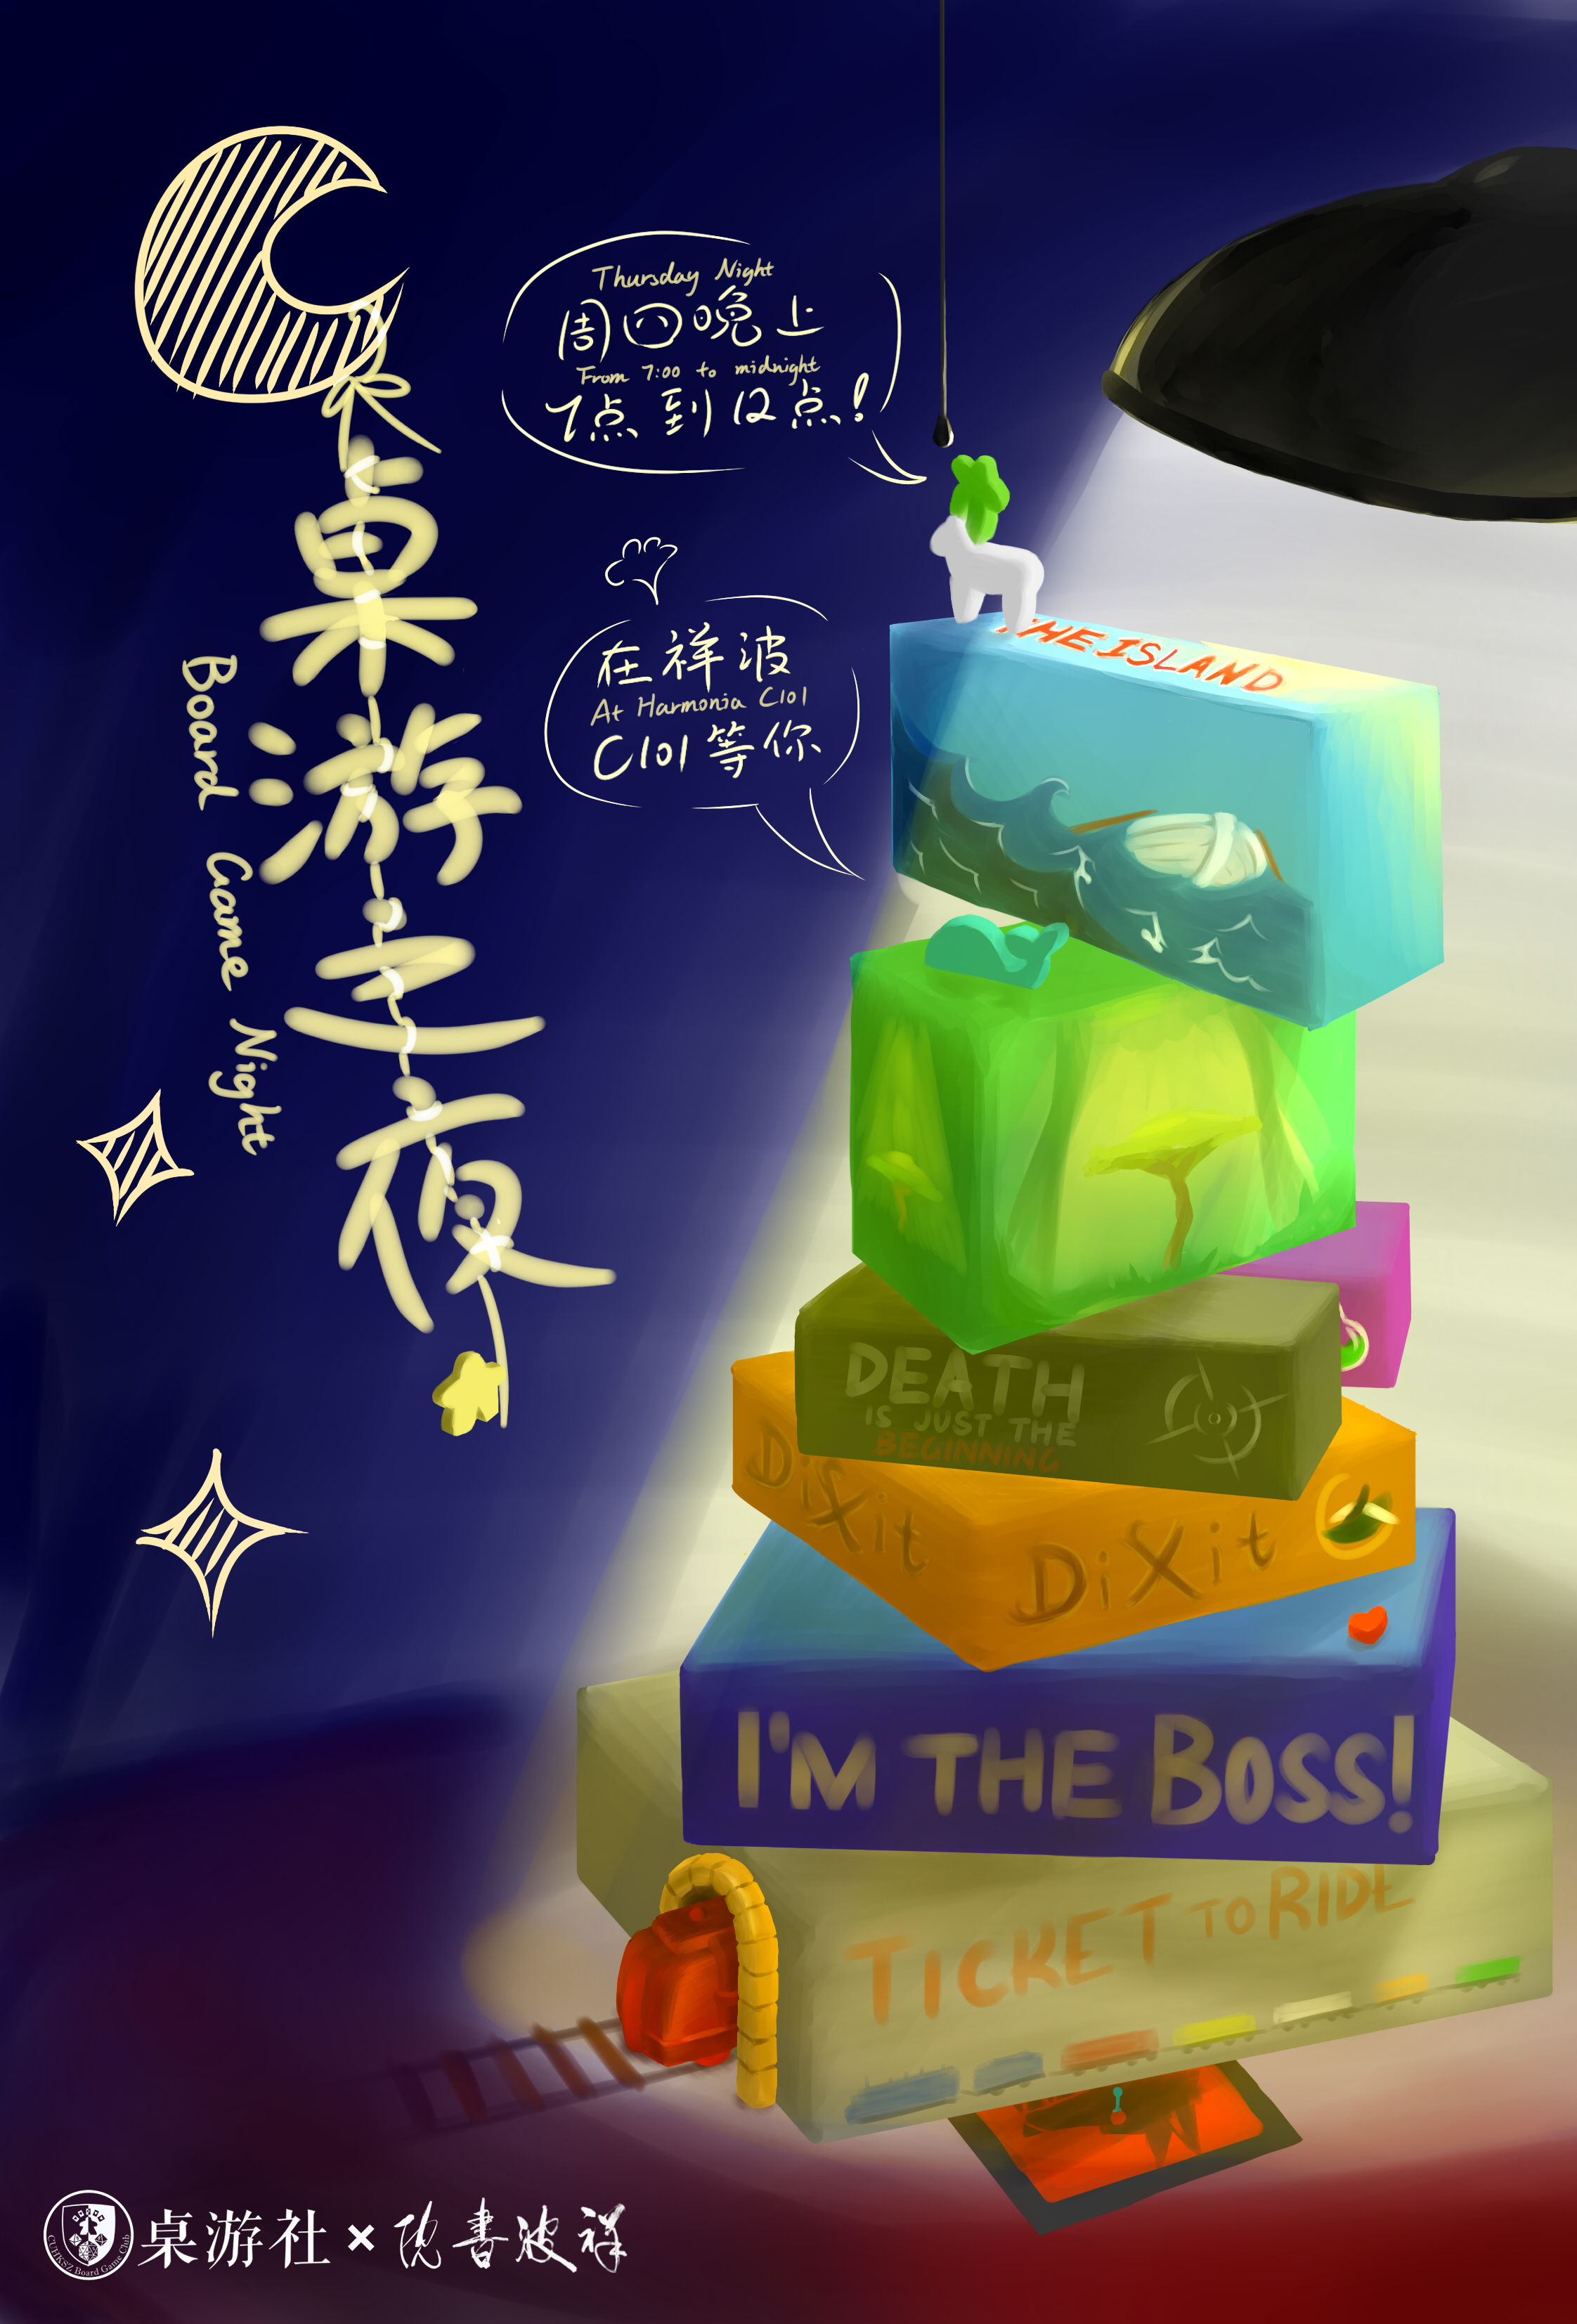 桌游之夜
Board Game Night
Thursday Night
周四晚上
From 7:00 to midnight
7点到12点!
在祥波
At Harmonia C101
C101等你
THE ISLAND
DEATH
IS JUST THE
BEGINNING
DiXit
DiXit
I'M THE BOSS!
TICKET TO RIDE
CUHKSZ Board Game Club
桌游社 × 院書波祥